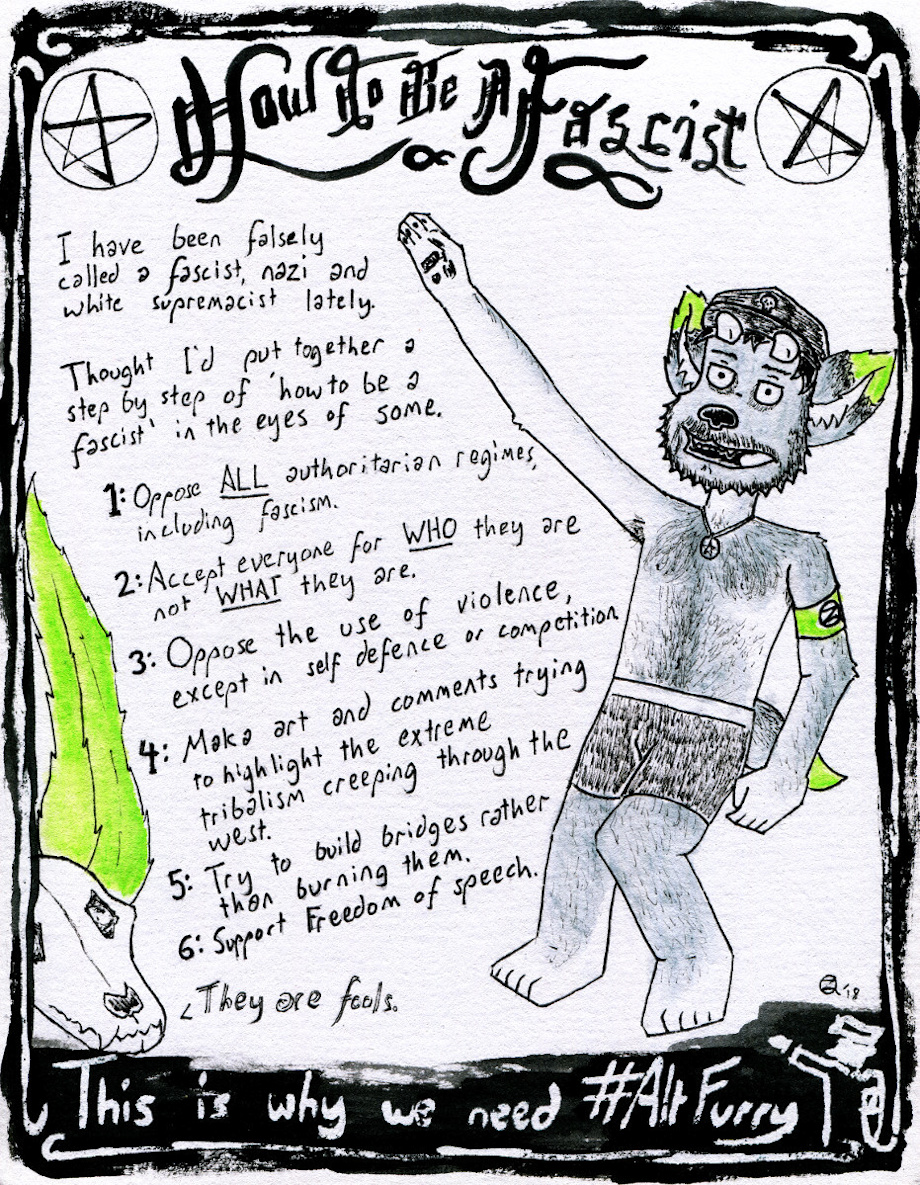 How To Be A Fascist
I have been falsely
called a fascist, nazi and
white supremacist lately.
Thought I'd put together a
step by step of 'how to be a
fascist' in the eyes of some.
1: Oppose ALL authoritarian regimes,
including fascism.
2: Accept everyone for WHO they are
not WHAT they are.
3: Oppose the use of violence,
except in self defence or competition
4: Make art and comments trying
to highlight the extreme
tribalism creeping through the
west.
5: Try to build bridges rather
than burning them.
6: Support Freedom of speech.
They are fools.
'18
This is why we need #AltFurry